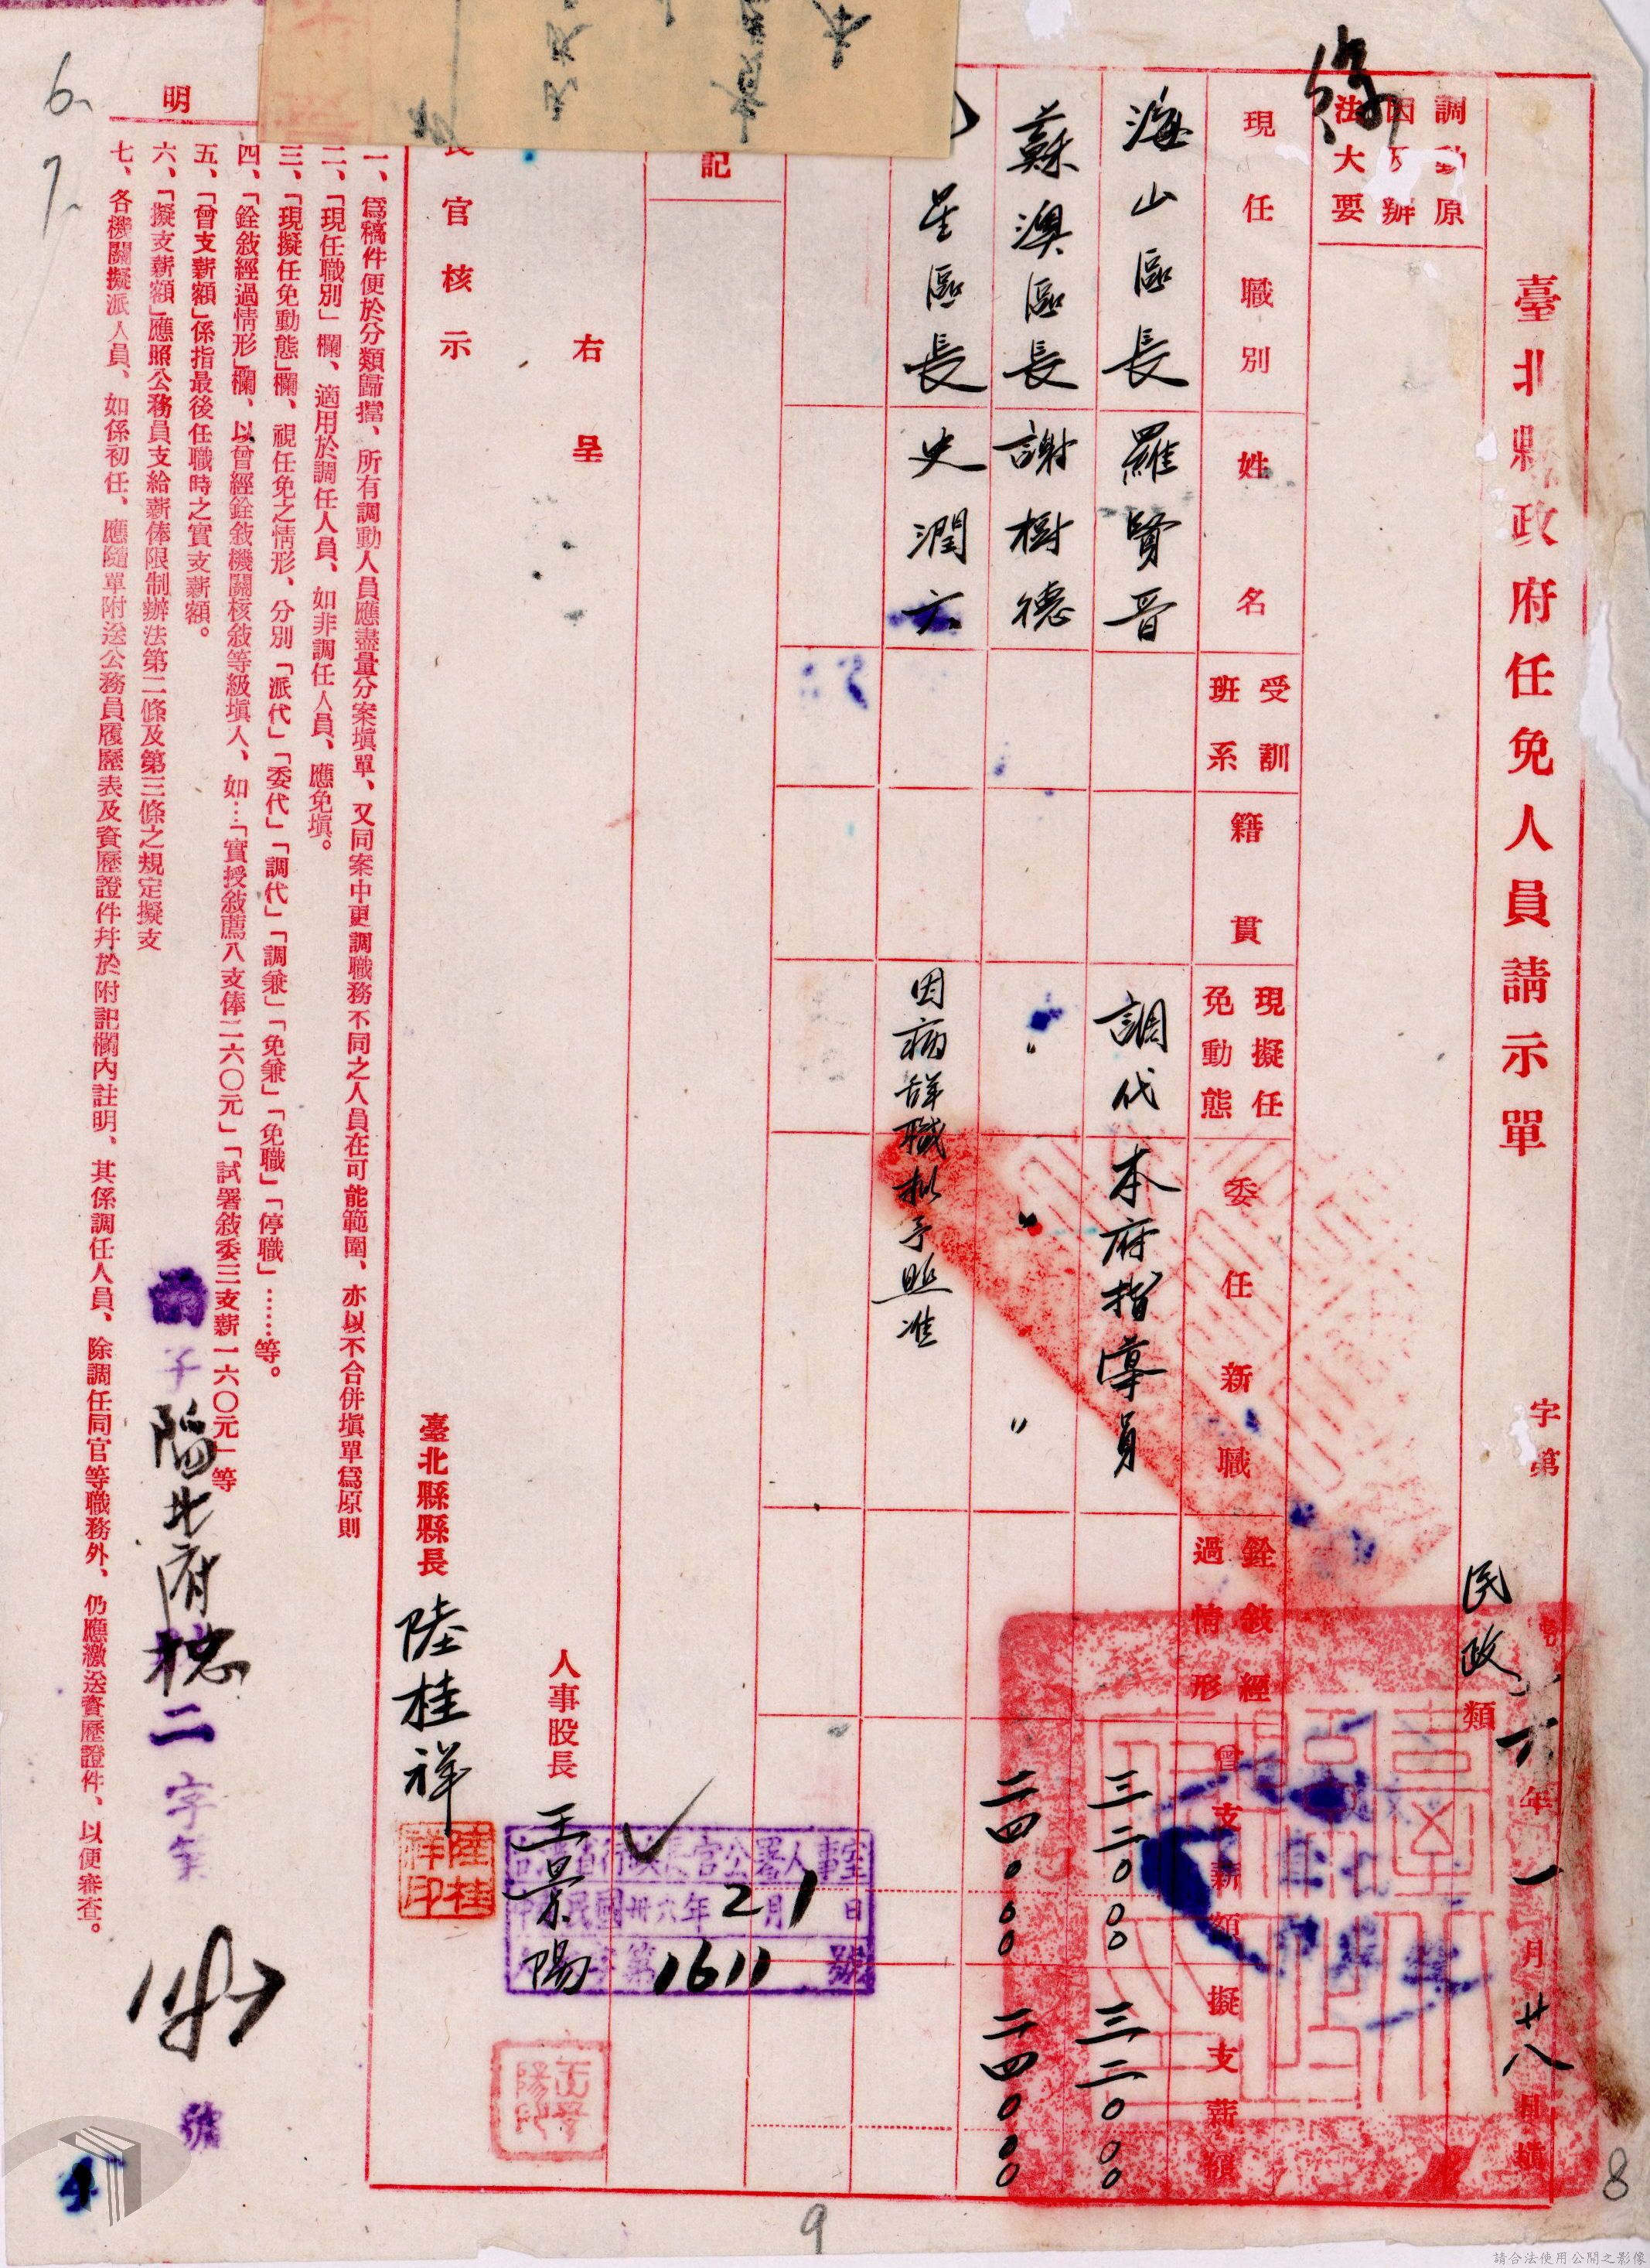 臺北縣政府任免人員請示單
字第
民政類
六年一月廿八日
調動原
因辦
法大要
現任職別
姓名
受訓
班系
籍貫
現擬任
免動態
委任新職
銓敍經
過情形
曾支薪額
擬支薪額
海山區長 羅賢晋 調代 本府指導員 三二〇・〇〇 三二〇・〇〇
蘇澳區長 謝樹德 〃 〃 〃 二四〇・〇〇 二四〇・〇〇
星區長 史潤六 因病辞職拟予照准
記
右呈
人事股長 王景陽
王景陽印
長官核示
臺北縣縣長 陸桂祥
陸桂祥印
臺灣省行政長官公署人事室
中華民國卅六年2月1日
第1611號
明
一、爲稿件便於分類歸擋、所有調動人員應盡量分案塡單、又同案中更調職務不同之人員在可能範圍、亦以不合併塡單爲原則
二、「現任職別」欄、適用於調任人員、如非調任人員、應免塡。
三、「現擬任免動態」欄、視任免之情形、分別「派代」「委代」「調代」「調兼」「免兼」「免職」「停職」……等。
四、「銓敍經過情形」欄、以曾經銓敍機關核敍等級塡入、如…「實授敍薦八支俸二六〇元」「試署敍委三支薪一六〇元」等
五、「曾支薪額」係指最後任職時之實支薪額。
六、「擬支薪額」應照公務員支給薪俸限制辦法第二條及第三條之規定擬支
七、各機關擬派人員、如係初任、應隨單附送公務員履歷表及資歷證件幷於附記欄內註明、其係調任人員、除調任同官等職務外、仍應繳送資歷證件、以便審查。
子陷北府穂二字第
號
6
7
8
9
4
請合法使用公開之影像